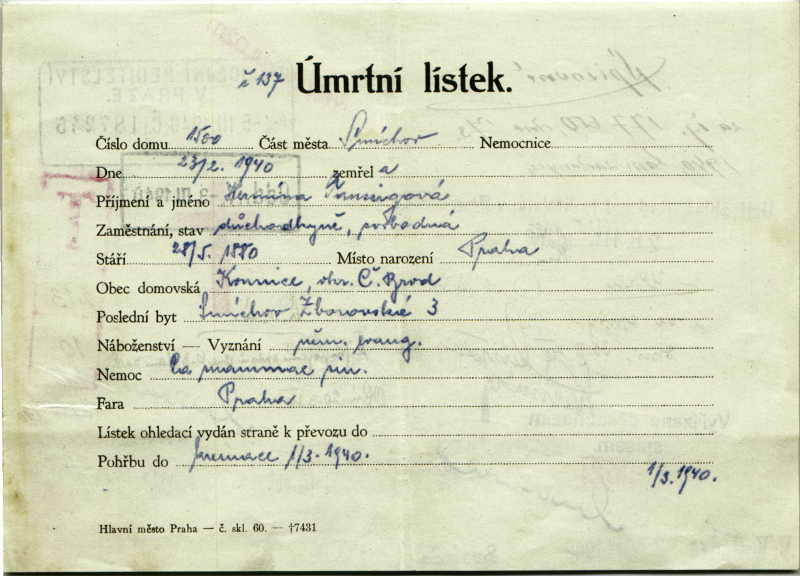 č 137 Úmrtní lístek.
Číslo domu 1500 Část města Smíchov Nemocnice
Dne 23/2. 1940 zemřel a
Příjmení a jméno Hermína Taussigová
Zaměstnání, stav důchodkyně, svobodná
Stáří 28/5. 1880 Místo narození Praha
Obec domovská Kounice, okr. Č. Brod
Poslední byt Smíchov Zborovská 3
Náboženství — Vyznání něm. evang.
Nemoc Ca mammae
Fara Praha
Lístek ohledací vydán straně k převozu do
Pohřbu do kremace 1/3. 1940.
1/3. 1940.
Hlavní město Praha — č. skl. 60. — †7431